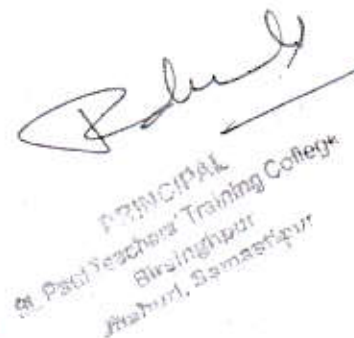 PRINCIPAL
St. Paul Teachers' Training College
Birsinghpur
Samastipur